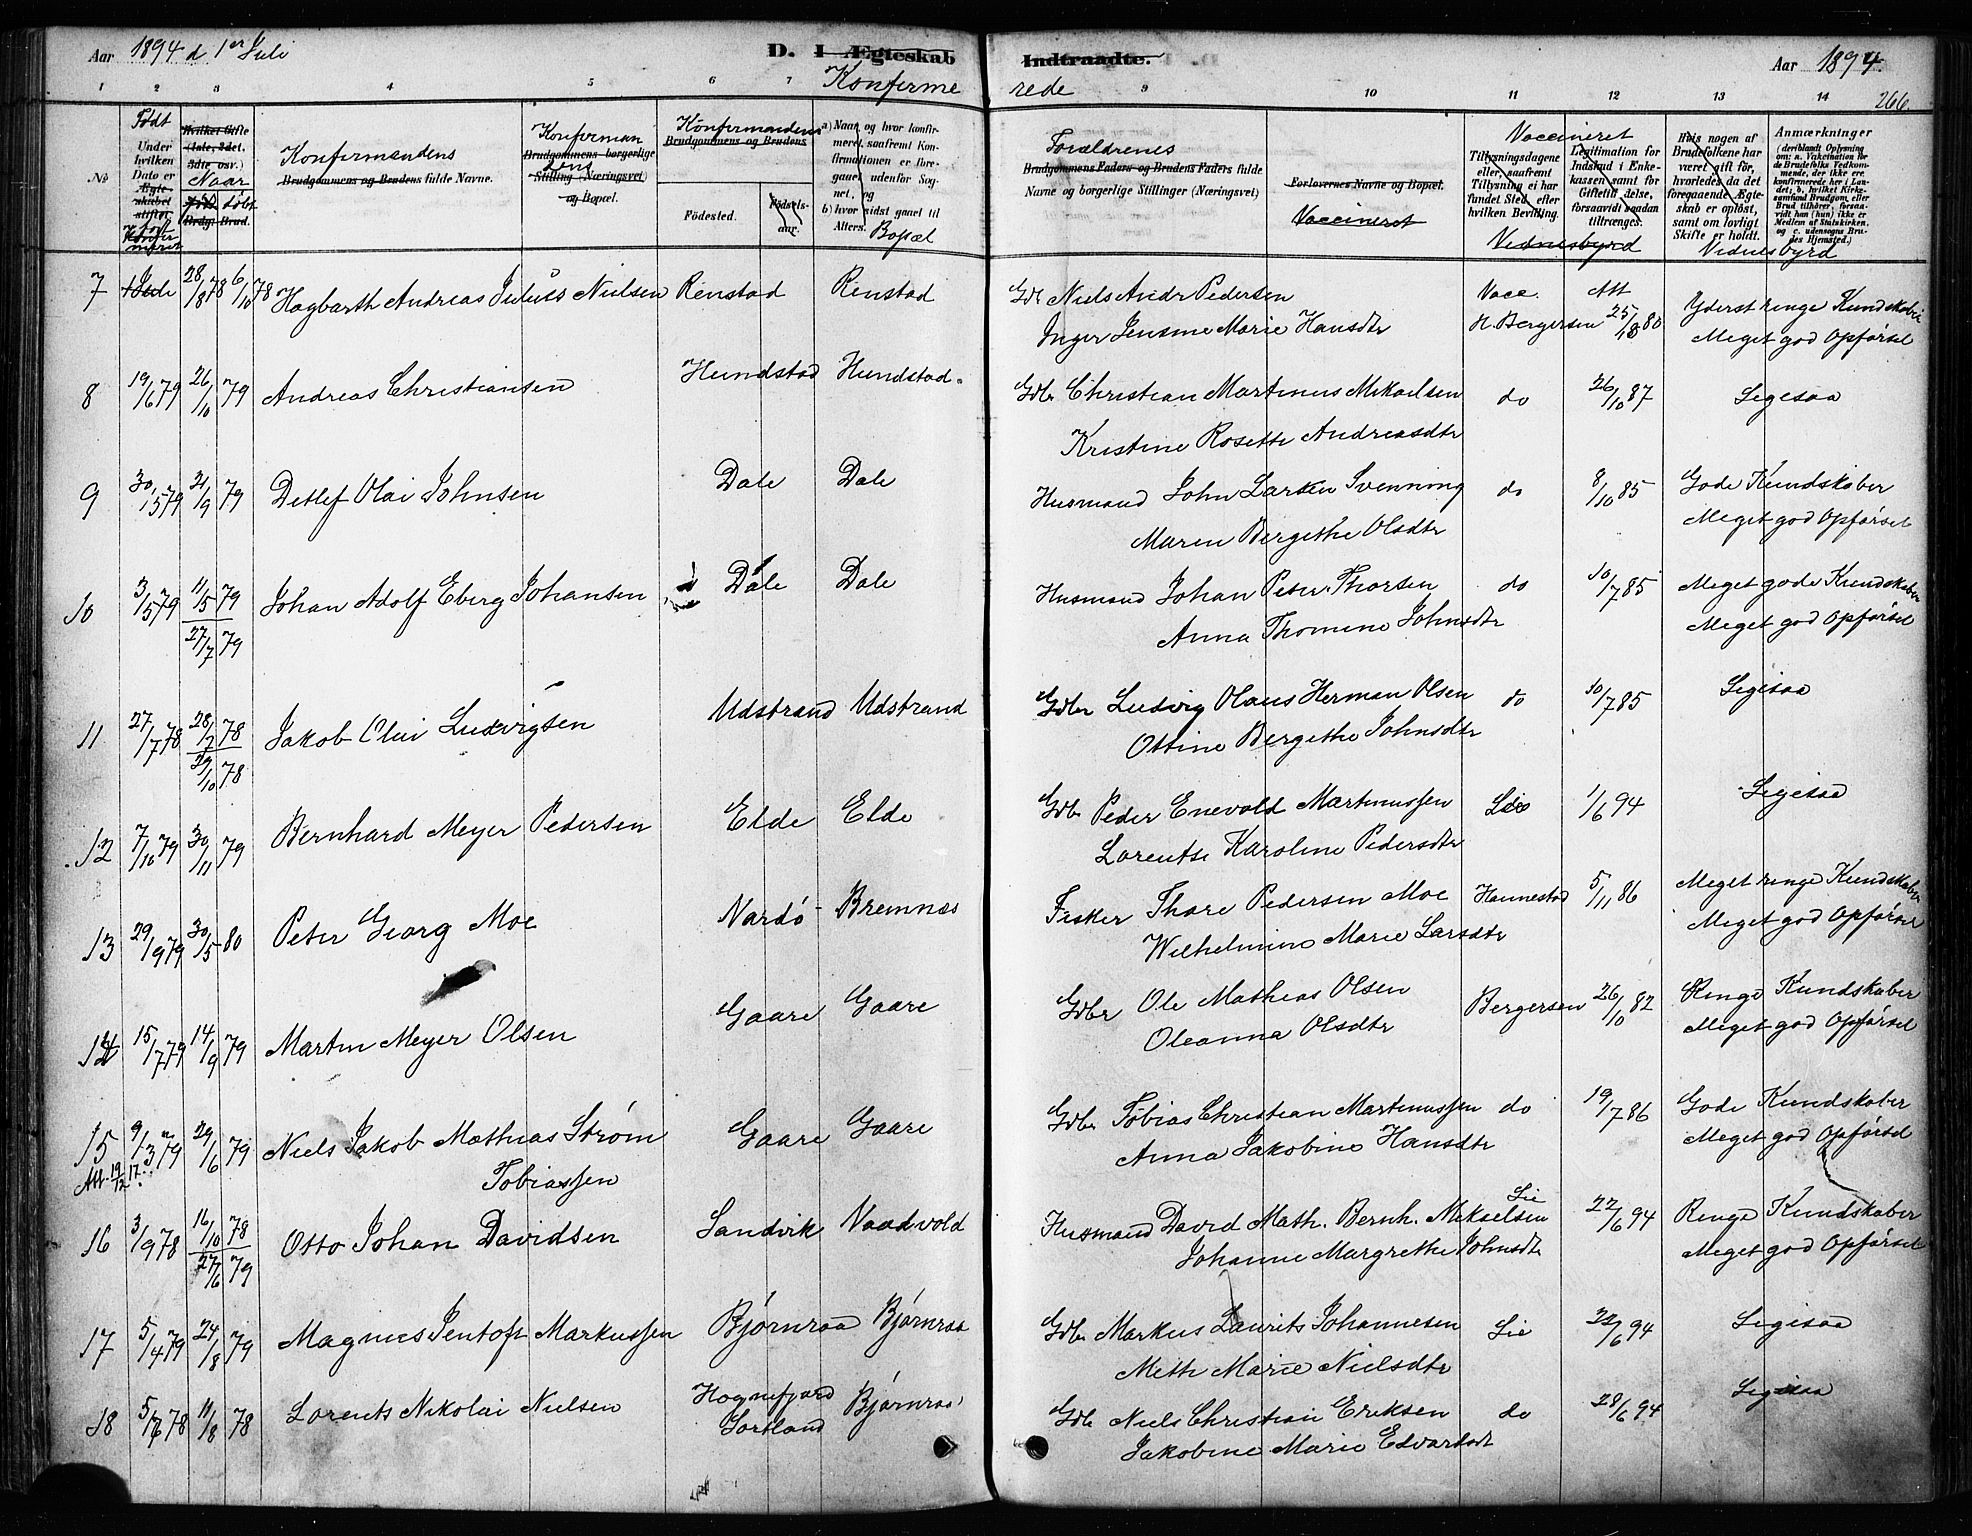 Aar 1894 d 1er Juli D. I Ægteskab Indtraadte. Aar 1894.
Konfirme rede 266.
1 2 3 4 5 6 7 9 10 11 12 13 14
No Født Under hvilken Dato er Konfirmeret
Naar født døbt
Konfirmandens
Brudgommens og Brudens fulde Navne.
Konfirmandens
Brudgommens borgerlige Stilling (Næringsvei) og Bopæl.
Konfirmandens
Brudgommens og Brudens
Fødested. Fødselsaar.
a) Naar og hvor konfirmeret, saafremt Konfirmationen er foregaaet udenfor Sognet, og b) hvor sidst gaaet til Alters. Bopæl
Forældrenes
Brudgommens Faders og Brudens Faders fulde Navne og borgerlige Stillinger (Næringsvei)
Forlovernes Navne og Bopæl.
Vaccineret
Vaccineret
Tillysningsdagene eller, saafremt Tillysning ei har fundet Sted, efter hvilken Bevilling.
Legitimation for Indskud i Enkekassen samt for Giftetilladelse, forsaavidt saadan tiltrænges.
Vidnesbyrd
Hvis nogen af Brudefolkene har været gift før, hvorledes da det foregaaende Ægteskab er opløst, samt om lovligt Skifte er holdt.
Anmærkninger
Vidnesbyrd
7 1 Juli 28/8 78 6/10 78 Hagbarth Andreas Julius Nielsen Renstad Renstad Gbr Niels Andr Pedersen Vacc. Att Yderst ringe Kundskaber
Inger Jensine Marie Hansdtr H. Bergersen 25/10 80 Meget god Opførsel
8 19/6 79 26/10 79 Andreas Christiansen Hundstad Hundstad Gdbr Christian Martinus Mikaelsen do 26/10 87 Ligesaa
Kristine Rosette Andreasdtr
9 30/5 79 21/9 79 Detlef Olai Johnsen Dale Dale Husmand John Larsen Svenning do 8/10 85 Gode Kundskaber
Maren Bergethe Olsdtr Meget god Opførsel
10 3/5 79 11/5 79 Johan Adolf Eberg Johansen Dale Dale Husmand Johan Peter Thorsen do 10/7 85 Meget gode Kundskaber
27/7 79 Anna Thomine Johnsdtr Meget god Opførsel
11 27/7 78 28/7 78 Jakob Olai Ludvigsen Udstrand Udstrand Gdbr Ludvig Olaus Herman Olsen do 10/7 85 Ligesaa
/10 78 Ottine Bergethe Johnsdtr
12 7/10 79 30/11 79 Bernhard Meyer Pedersen Elde Elde Gdb Peder Enevold Martinussen Lie 1/6 94 Ligesaa
Lorentse Karoline Pedersdtr
13 29/9 79 30/5 80 Peter Georg Moe Nardø Bremnes Fisker Thore Pedersen Moe Hannestad 5/11 86 Meget ringe Kundskaber
Wilhelmine Marie Larsdtr Meget god Opførsel
14 15/7 79 14/9 79 Martin Meyer Olsen Gaare Gaare Gdbr Ole Mathias Olsen Bergersen 26/10 82 Ringe Kundskaber
Oleanna Olsdtr Meget god Opførsel
15 9/3 79 29/6 79 Niels Jakob Mathias Strøm Gaare Gaare Gdbr Tobias Christian Martinussen do 19/7 86 Gode Kundskaber
Att. 19/12 17. Tobiassen Anna Jakobine Hansdtr Meget god Opførsel
16 3/9 78 16/10 78 Otto Johan Davidsen Sandvik Vaadvold Husmand David Math. Bernh. Mikaelsen Lie 22/6 94 Ringe Kundskaber
27/6 79 Johanne Margrethe Johnsdtr Meget god Opførsel
17 5/4 79 24/8 79 Magnus Jentoft Markussen Bjørnraa Bjørnraa Gdbr Markus Laurits Johannesen Lie 22/6 94 Ligesaa
Meth Marie Nielsdtr
18 78 11/8 78 Lorents Nikolai Nielsen Hognfjord Sortland Bjørnraa Gdb Niels Christian Eriksen do 28/6 94 Ligesaa
Jakobine Marie Edvartsdt